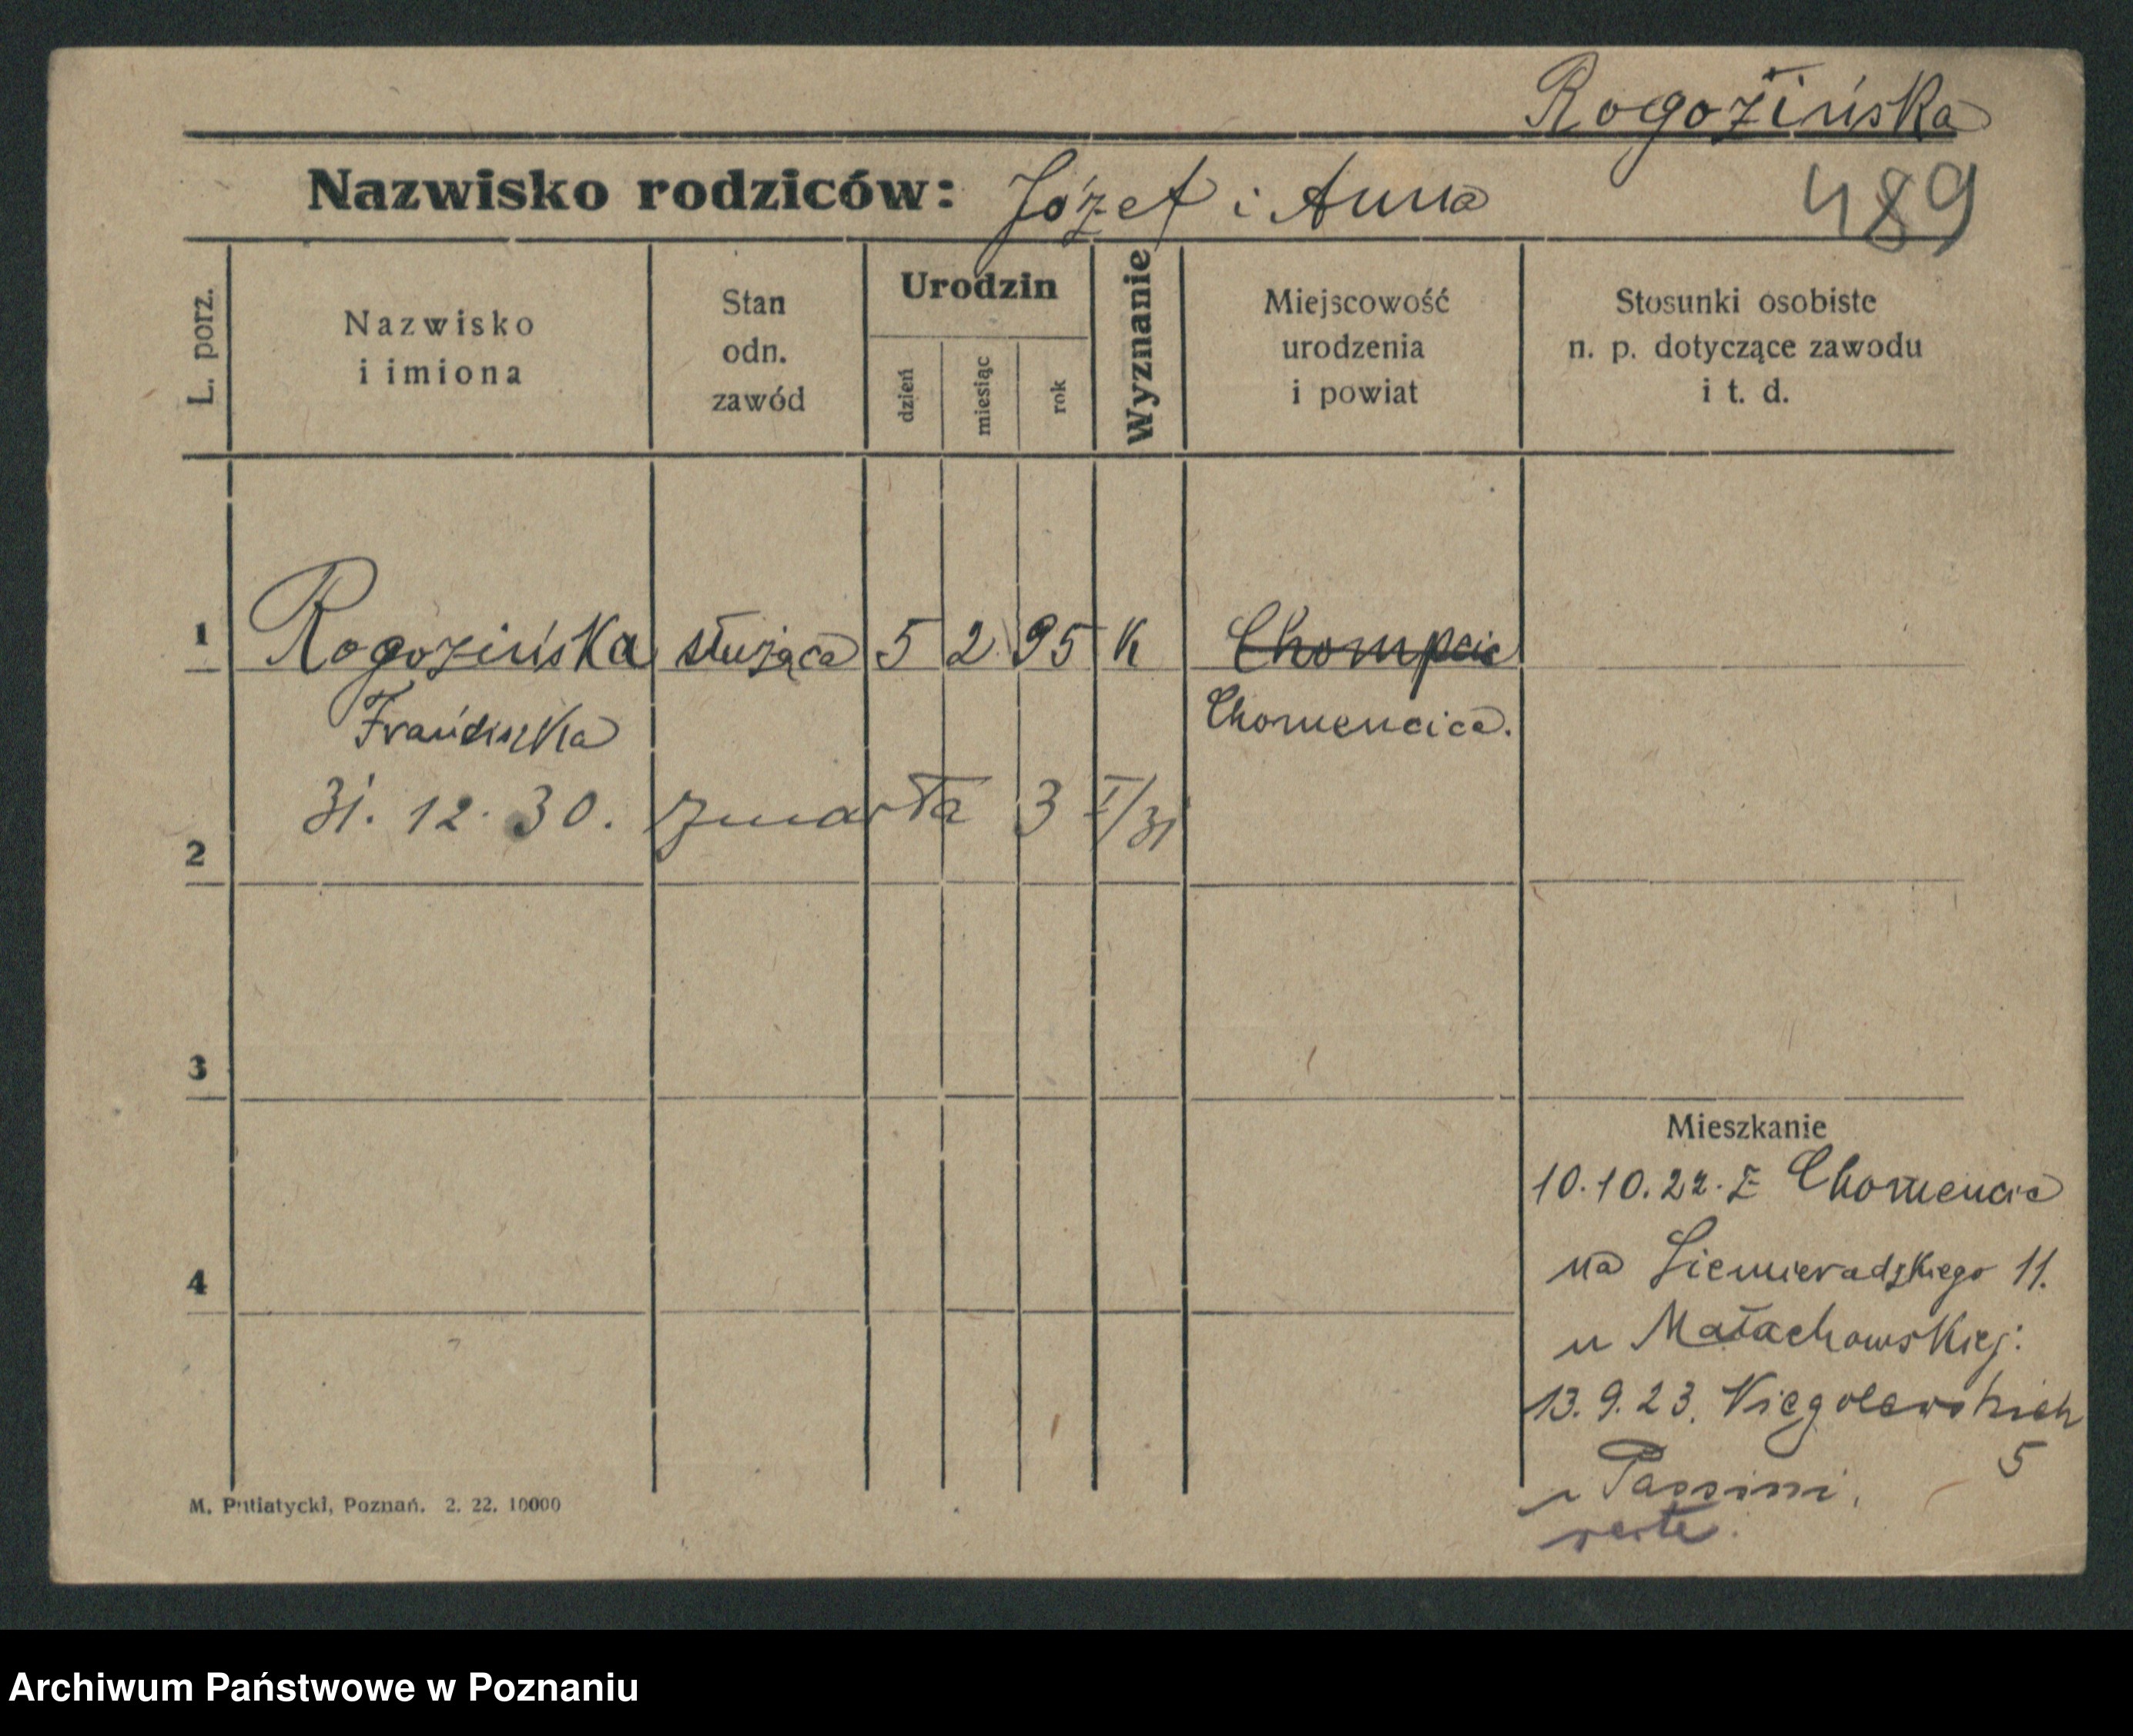 Rogozińska
489
Nazwisko rodziców: Józef i Anna
L. porz.
Nazwisko
i imiona
Stan
odn.
zawód
Urodzin
dzień
miesiąc
rok
Wyznanie
Miejscowość
urodzenia
i powiat
Stosunki osobiste
n. p. dotyczące zawodu
i t. d.
1 Rogozińska służąca 5 2 95 K Chompcic
Franciszka Chomencice.
31. 12. 30. zmarła 3 I/31
2
3
4
Mieszkanie
10.10.22. Z Chomencic
na Siemieradzkiego 11.
u Małachowskiej:
13. 9. 23. Niegolewskich
5
u Passini.
verte.
M. Putiatycki, Poznań. 2. 22. 10000
Archiwum Państwowe w Poznaniu